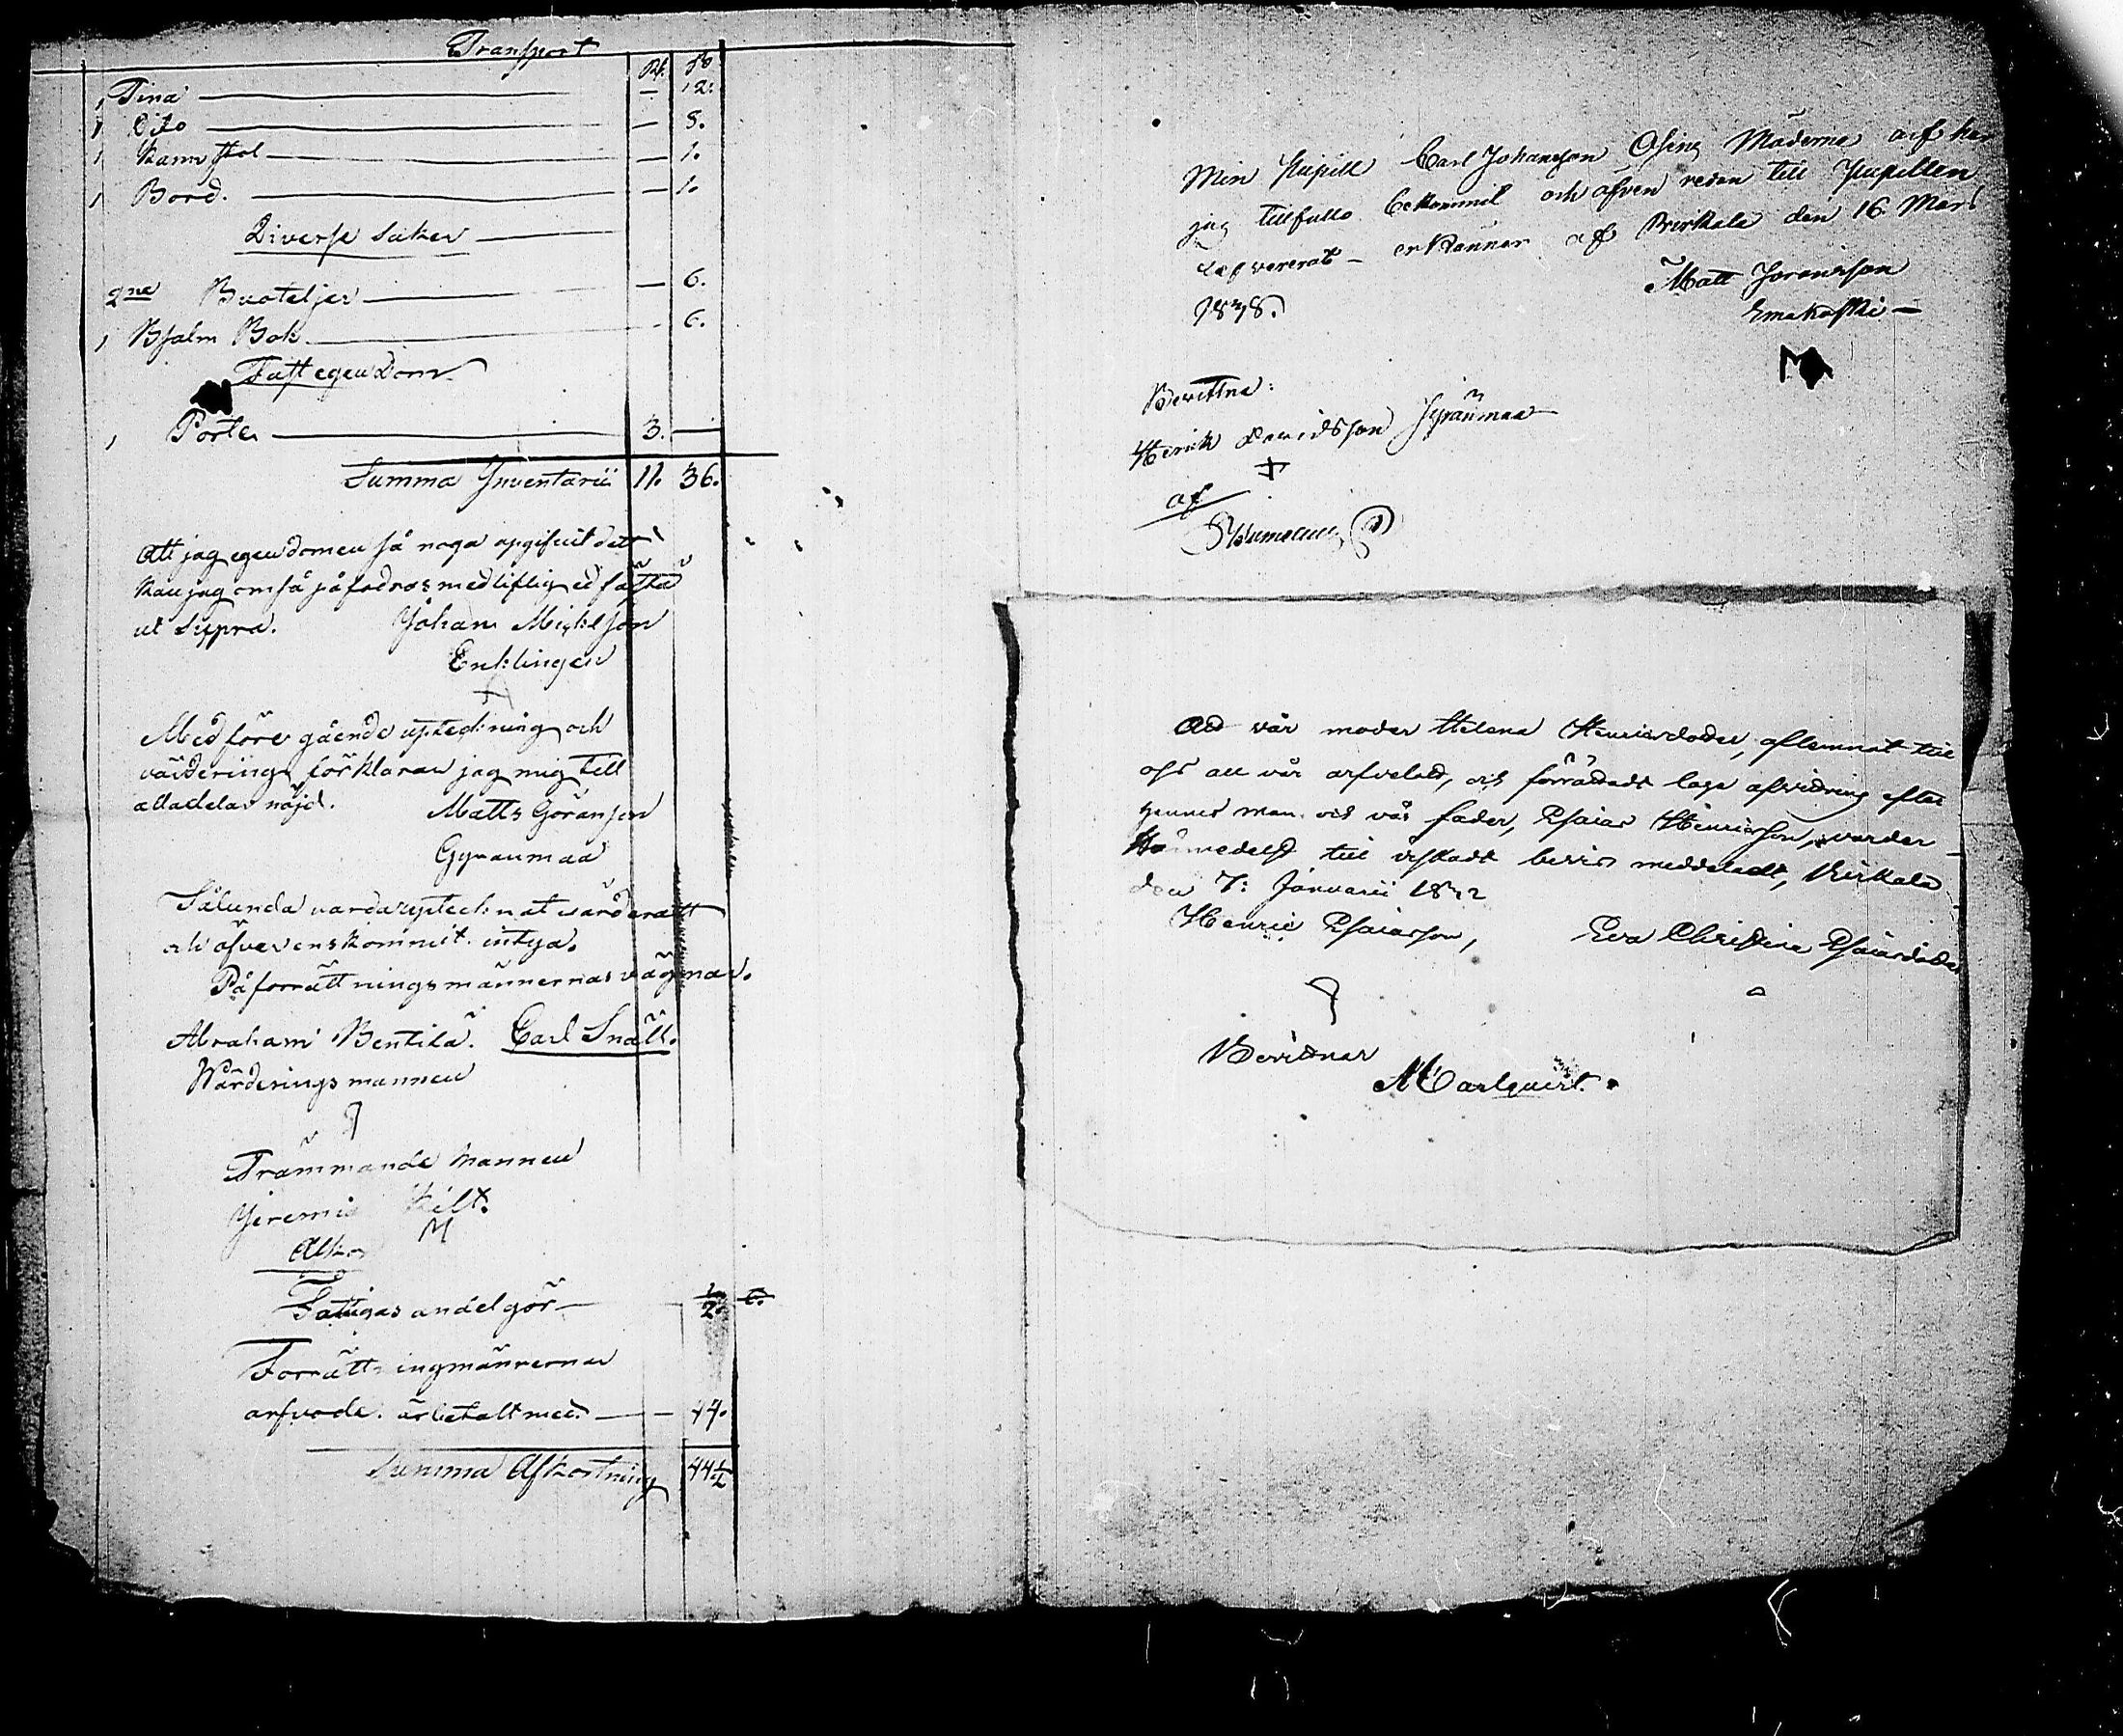 Transport
Rb. k̃o
1 Tina — 12.
1 Dito — 5.
1 Karm stol — 1.
1 Bord. — 1.
Diverse saker
2ne Buoteljer — 6.
1 Psalm Bok — 6.
Fast egendom
1 Porte 3. —
Summa Inventarii 11. 36.
Att jag egendomen så noga opgifvit det
kan jag om så påfodras med liflig ed fästa
ut Supra. Johan Mickelson
Enklingen
Med före gående uptekning och
värdering förklarar jag mig till
alla delar nöjd. Matts Göranson
Gyraumaa
Sålunda vara uptecknat värderatt
och öfverenskommit intyga.
På forrättningsmännernas vägnar.
Abraham Bentila. Carl Snäll.
Wärderings mannen
Främmande mannen
Jeremia Kilt.
M
Afk
Fattigas andel gör — 2.
Forrättningmännernas
arfvode är betalt med — 44.
Summa Afkortning 44 1/2
Min Pupill Carl Johansson Möderne arf har
jag tillfullo bekommit och äfven redan till Pupillen
lefvererat — erkänner af Pirkala den 16 Mars
1838. Matt Joranssson
M
Bevittna:
Henrik Davidsson Gyraumaa
af
Att vår moder Helena Henricsdotter, aflemnat till
oss all vår arfvelott, och förrättadt laga afvidring efter
hennes man och vår fader, Esaias Henricsson, varder
härmedelst till önskadt bevis meddeladt, Pirkala
den 7: Januarii 1842
Henric Esaiasson, Eva Christina Esaiasdotter
Bevittnar
M Carlqvist.